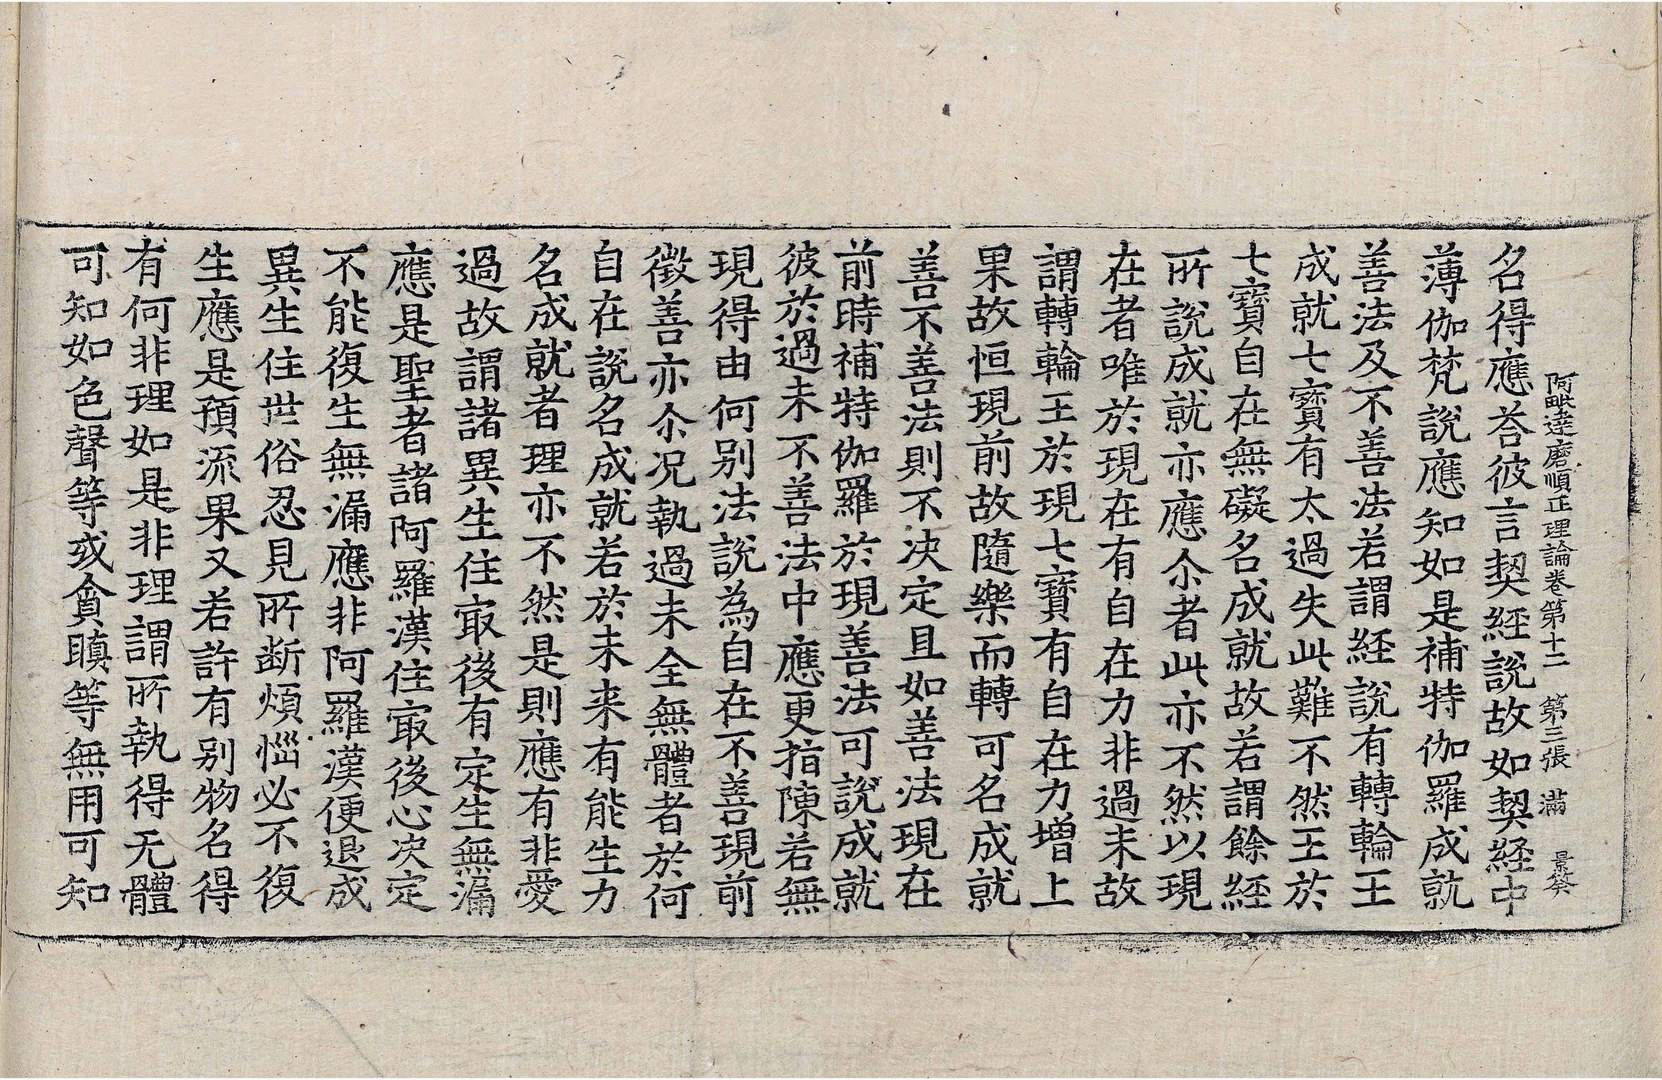 阿毗達磨順正理論卷第十二　第三張　滿　景葵
名得應荅彼言契経說故如契経中
薄伽梵說應知如是補特伽羅成就
善法及不善法若謂経說有轉輪王
成就七寶有太過失此難不然王於
七寶自在無礙名成就故若謂餘経
所說成就亦應尒者此亦不然以現
在者唯於現在有自在力非過未故
謂轉輪王於現七寶有自在力增上
果故恒現前故隨樂而轉可名成就
善不善法則不決定且如善法現在
前時補特伽羅於現善法可說成就
彼於過未不善法中應更指陳若無
現得由何別法說為自在不善現前
徵善亦尒况執過未全無體者於何
自在說名成就若於未来有能生力
名成就者理亦不然是則應有非愛
過故謂諸異生住㝡後有定生無漏
應是聖者諸阿羅漢住㝡後心决定
不能復生無漏應非阿羅漢便退成
異生住世俗忍見所断煩惱必不復
生應是預流果又若許有別物名得
有何非理如是非理謂所執得无體
可知如色聲等或貪瞋等無用可知